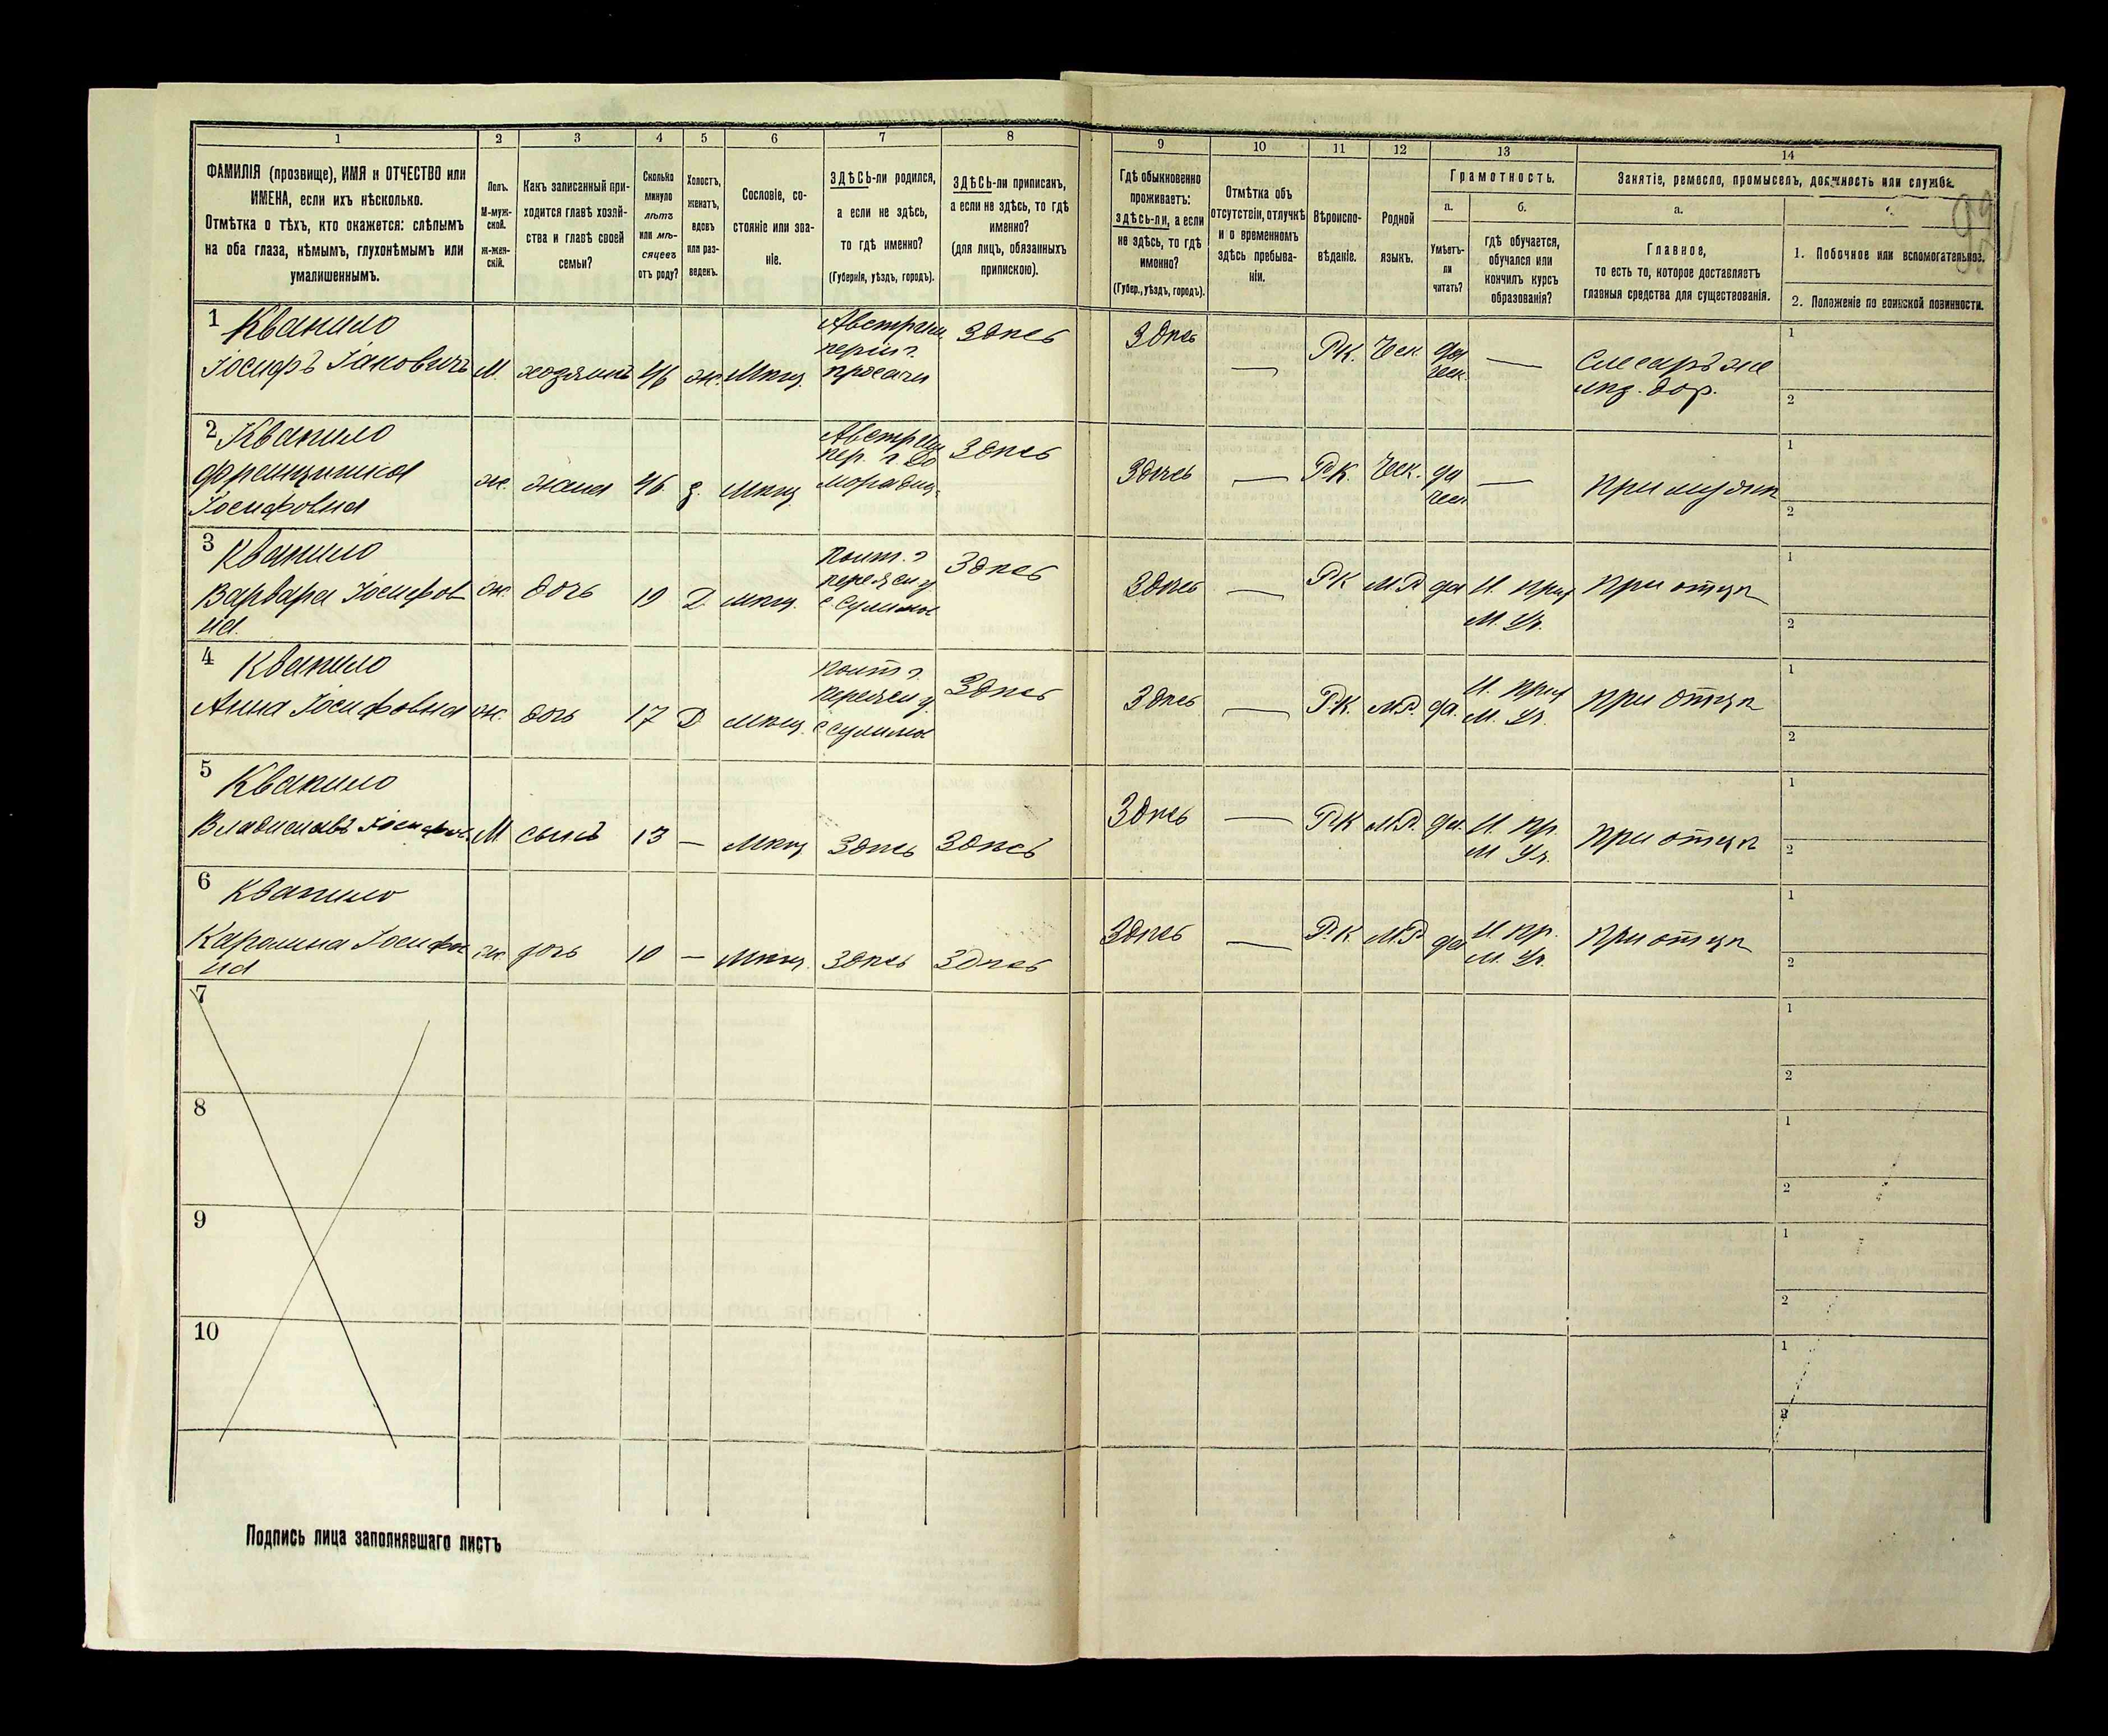 1 2 3 4 5 6 7 8 9 10 11 12 13 14
ФАМИЛІЯ (прозвище), ИМЯ и ОТЧЕСТВО или
ИМЕНА, если ихъ нѣсколько.
Отмѣтка о тѣхъ, кто окажется: слѣпымъ
на оба глаза, нѣмымъ, глухонѣмымъ или
умалишеннымъ.
Полъ.
М-муж-
ской.
Ж-жен-
скій.
Какъ записанный при-
ходится главѣ хозяй-
ства и главѣ своей
семьи?
Сколько
минуло
лѣтъ
или мѣ-
сяцевъ
отъ роду?
Холостъ,
женатъ,
вдовъ
или раз-
веденъ.
Сословіе, со-
стояніе или зва-
ніе.
ЗДѢСЬ-ли родился,
а если не здѣсь,
то гдѣ именно?
(Губернія, уѣздъ, городъ).
ЗДѢСЬ-ли приписанъ,
а если не здѣсь, то гдѣ
именно?
(для лицъ, обязанныхъ
припискою).
Гдѣ обыкновенно
проживаетъ:
здѣсь-ли, а если
не здѣсь, то гдѣ
именно?
(Губер., уѣздъ, городъ).
Отмѣтка объ
отсутствіи, отлучкѣ
и о временномъ
здѣсь пребыва-
ніи.
Вѣроиспо-
вѣданіе.
Родной
языкъ.
Грамотность.
а.
Умѣетъ-
ли
читать?
б.
гдѣ обучается,
обучался или
кончилъ курсъ
образованія?
Занятіе, ремесло, промыселъ, должность или служба.
а.
Главное,
то есть то, которое доставляетъ
главныя средства для существованія.
1. Побочное или вспомогательное.
2. Положеніе по воинской повинности.
1 Квапило
Іосифъ Іаковичъ М. хозяинъ 46 ж. Мѣщ. Здѣсь Здѣсь — Р.К. Чех. да — Слесарь же
чех. лѣз. дор. 1 2
2 Квапило
Францишка
Іосифовна ж. жена 46 з. Мѣщ. Здѣсь Здѣсь — Р.К. Чех. да — При мужѣ
чех. 1 2
3 Квапило
Варвара Іосифов
на. ж. дочь 19 Д. мѣщ. Здѣсь Здѣсь — Р.К. М.Р. да При отцѣ
М. Уч. 1 2
4 Квапило
Анна Іосифовна ж. дочь 17 Д. Мѣщ. Здѣсь Здѣсь — Р.К. М.Р. да. При отцѣ
М. Уч. 1 2
5 Квапило
Владиславъ М сынъ 13 — Мѣщ Здѣсь Здѣсь Здѣсь — Р.К М.Р. да. Н. пр. При отцѣ
М Уч. 1 2
6 Квапило
Каролина Іосифов
на ж. дочь 10 — Мѣщ. Здѣсь Здѣсь Здѣсь — Р.К М.Р да Н. пр. При отцѣ
М. Уч. 1 2
7 1 2
8 1 2
9 1 2
10 1 2
Подпись лица заполнявшаго листъ